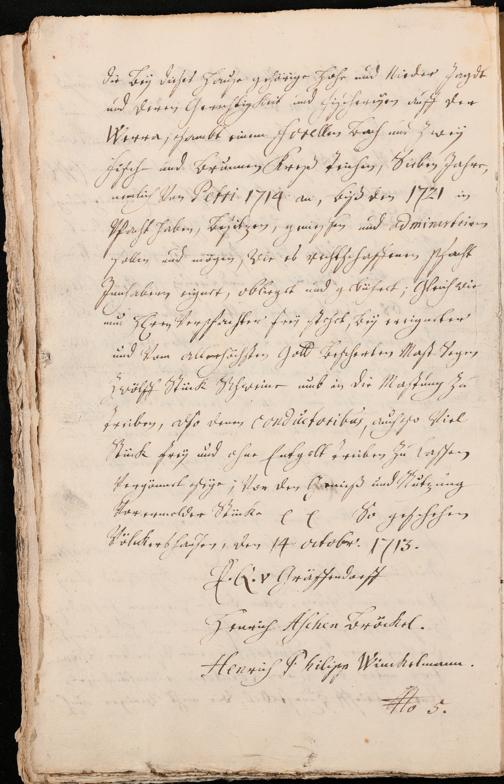 die bey dießes Hauße gehörige Hohe und Nieder Jagdt
und deren Gerechtigkeit und Fischereyen auff der
Werra, sambt einem Forellen Bach und zwey
Fisch und Brunnen Kreß Teichen, Sieben Jahre,
nemlich von Petri 1714 an, biß den 1721 in
Pacht haben, besitzen, geniessen und administriren
sollen und mögen, wie es rechtschaffenen Pacht
Innhabern eignet, oblieget und gebühret; Gleich wie
nun Herrn Verpachter frey stehet, bey ereigneter
und vom allerhöchsten Gott bescherten Mast Seegen
Zwölff Stück Schweine mit in die Mastung zu
treiben, also denen conductoribus, auch so viel
Stück frey und ohne Entgelt treiben zu lassen
vergönnet seye; vor den Genieß und Nutzung
vorermelder Stücke So geschehen
Völckershausen, den 14 octobr. 1713.
v Gräffendorff
Henrich Aschen Bröckel.
Henrich Philipp Winckelmann.
No 5.